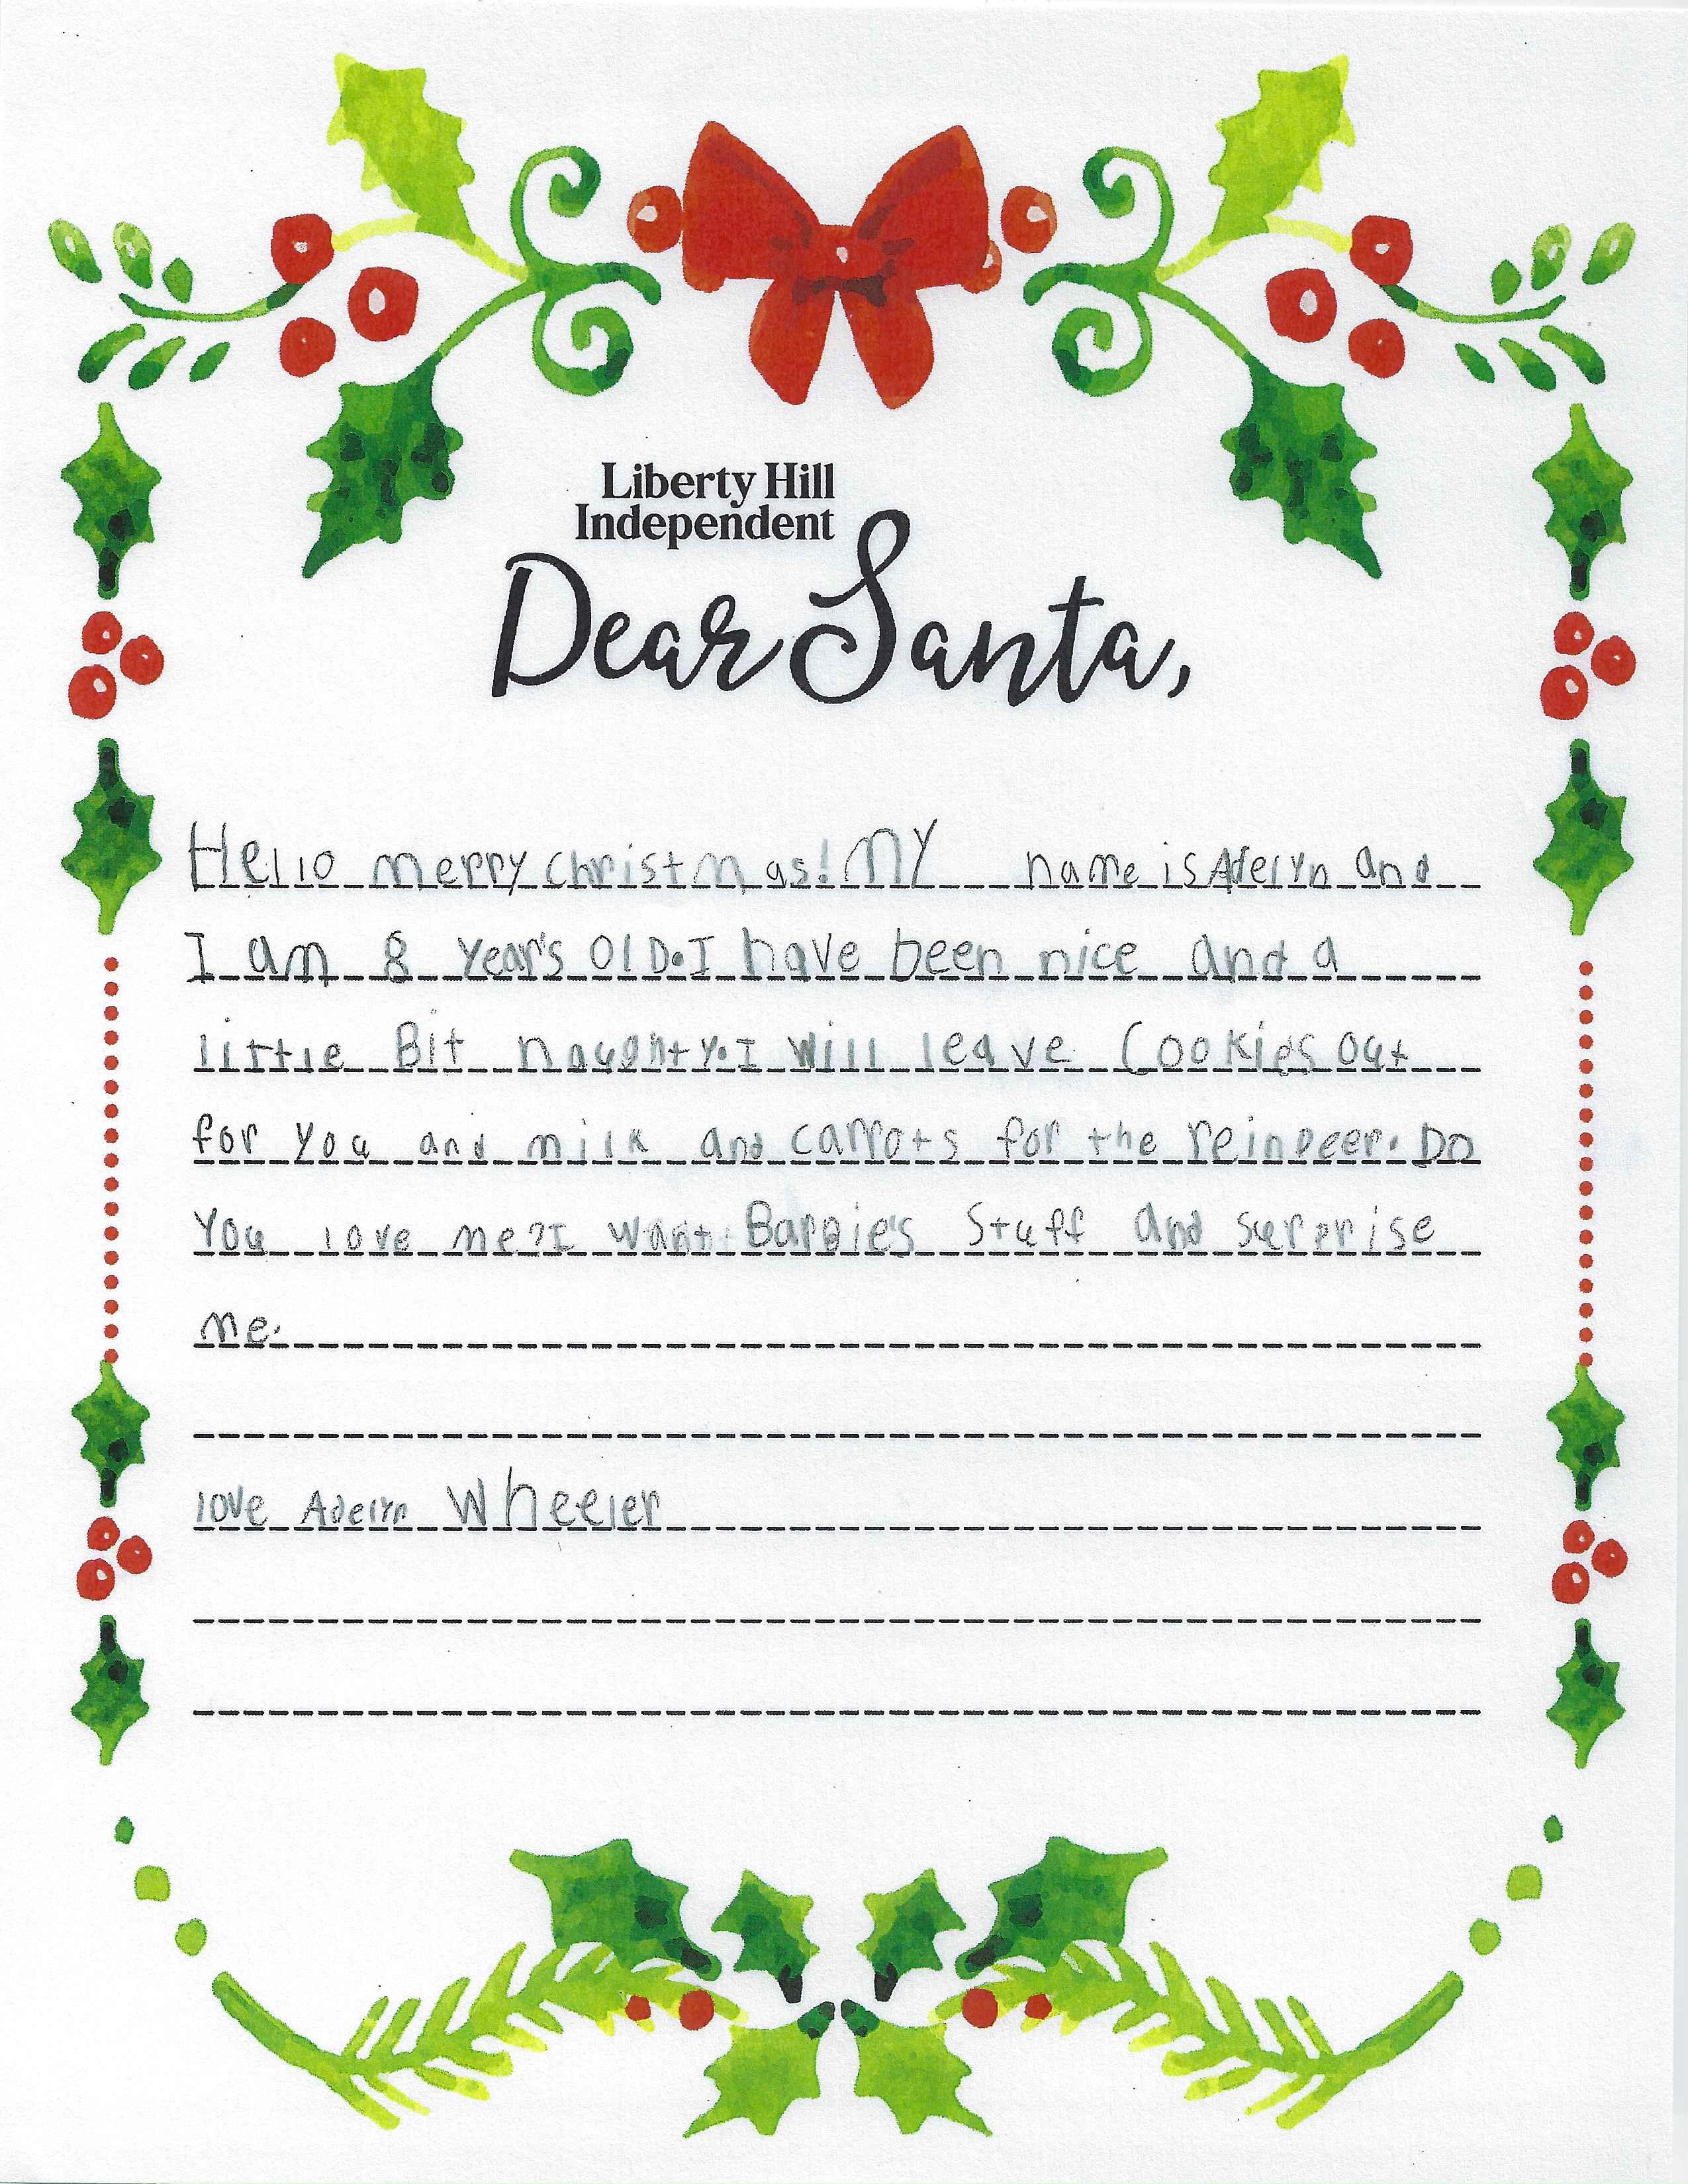 Liberty Hill
Independent
Dear Santa,
Hello merry christmas! MY name is Adelyn and
I am 8 Year's OlD. I have been nice and a
little Bit naughty. I will leave Cookies out
for you and milk and carrots for the reinDeer. Do
You love me? I want Barbie's Stuff and surprise
me.
love Adelyn Wheeler